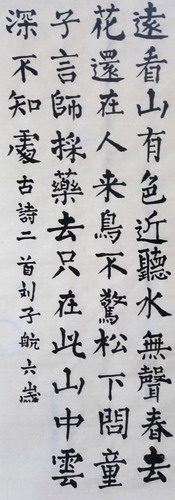 遠看山有色近聽水無聲春去
花還在人来鳥不驚松下問童
子言師採藥去只在此山中雲
深不知處古詩二首刘子航六歲